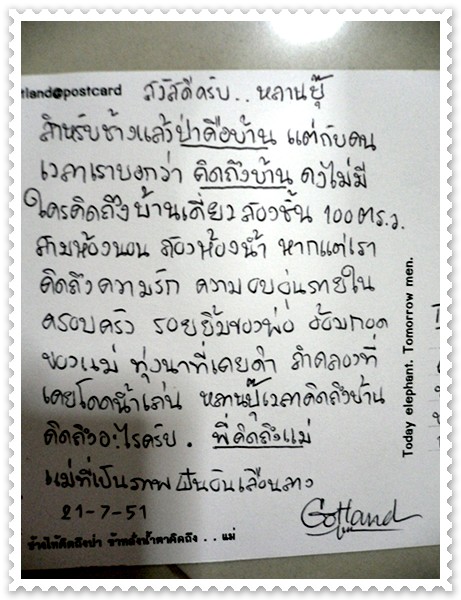 tland@postcard
สวัสดีครับ.. หลานปุ๊
สำหรับช้างแล้วป่าคือบ้าน แต่กับคน
เวลาเราบอกว่า คิดถึงบ้าน คงไม่มี
ใครคิดถึงบ้านเดี่ยวสองชั้น 100 ตร.ว.
สามห้องนอน สองห้องน้ำ หากแต่เรา
คิดถึงความรัก ความอบอุ่นภายใน
ครอบครัว รอยยิ้มของพ่อ อ้อมกอด
ของแม่ ทุ่งนาที่เคยดำ ลำคลองที่
เคยโดดน้ำเล่น หลานปุ๊เวลาคิดถึงบ้าน
คิดถึงอะไรครับ. พี่คิดถึงแม่
แม่ที่เป็นภาพฝันอันเลือนลาง
21-7-51
Gotland
ช้างไห้คิดถึงป่า ข้าหลั่งน้ำตาคิดถึง .. แม่
Today elephant. Tomorrow men.